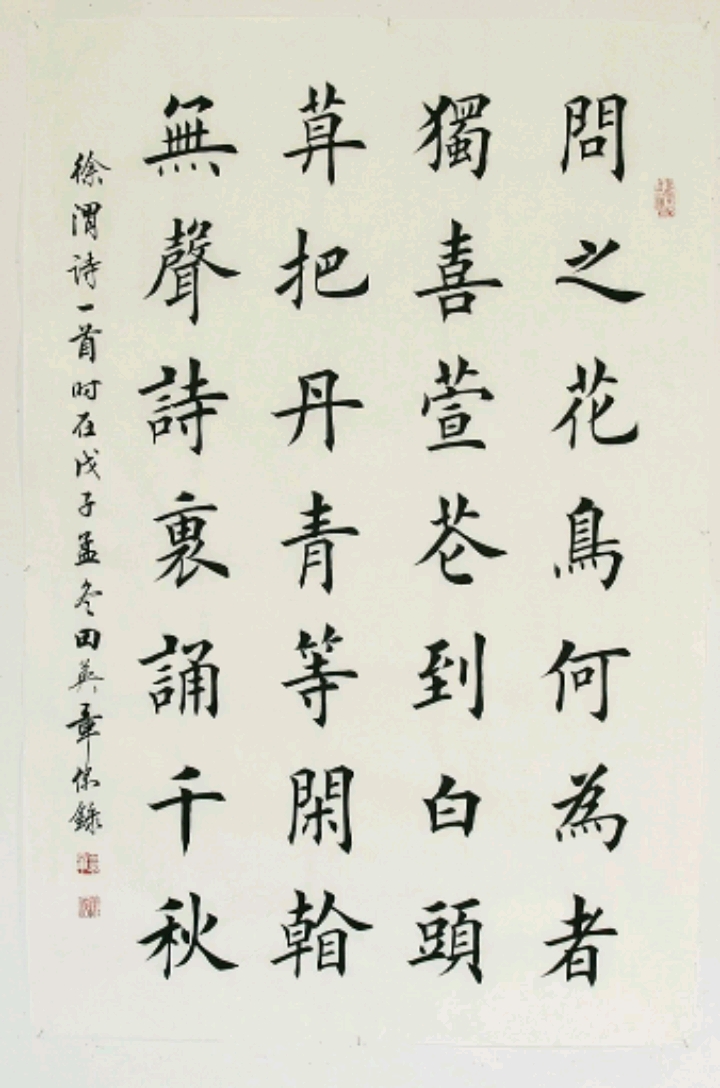 問之花鳥何為者
獨喜萱花到白頭
莫把丹青等閑看
無聲詩裏誦千秋
徐渭诗一首时在戊子孟冬田英章 錄